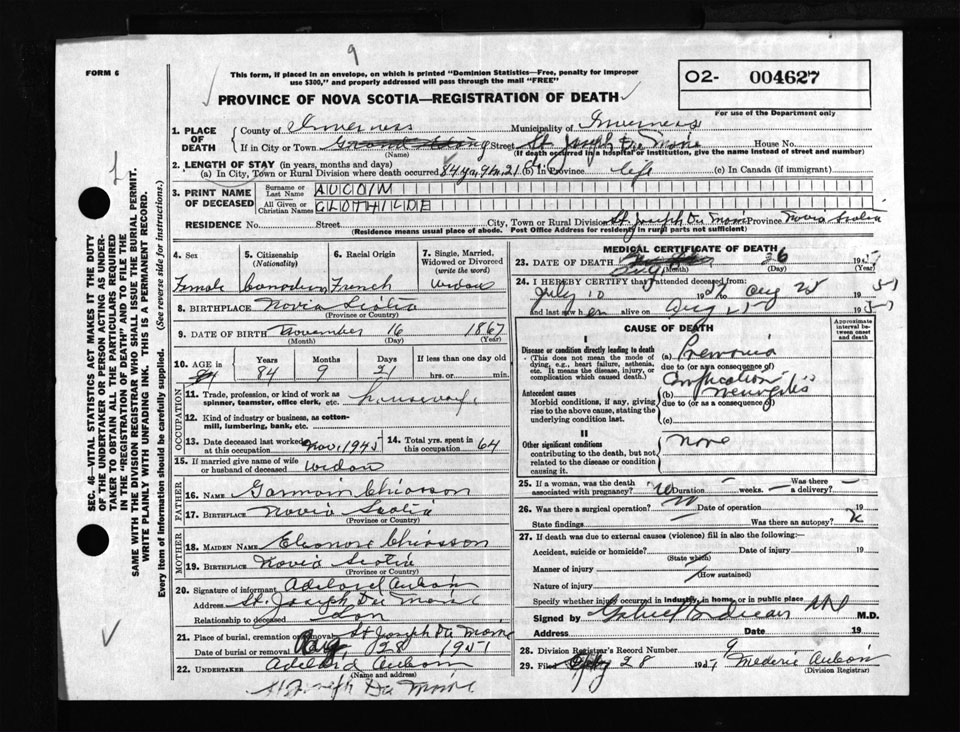 9
FORM 6
This form, if placed in an envelope, on which is printed "Dominion Statistics—Free, penalty for improper
use $300," and properly addressed will pass through the mail "FREE"
O2- 004627
PROVINCE OF NOVA SCOTIA—REGISTRATION OF DEATH
For use of the Department only
1. PLACE OF DEATH
County of Inverness Municipality of Inverness
If in City or Town Grand Etang Street St. Joseph Du Moine House No.
(Name) (If death occurred in a hospital or institution, give the name instead of street and number)
2. LENGTH OF STAY (in years, months and days)
(a) In City, Town or Rural Division where death occurred 84 ya, 9 m, 21 (b) In Province life (c) In Canada (if immigrant)
3. PRINT NAME OF DECEASED
Surname or Last Name AUCOIN
All Given or Christian Names CLOTHILDE
RESIDENCE No. Street City, Town or Rural Division St. Joseph Du Moine Province Novia Scotia
(Residence means usual place of abode. Post Office Address for residents in rural parts not sufficient)
4. Sex
5. Citizenship (Nationality)
6. Racial Origin
7. Single, Married, Widowed or Divorced (write the word)
Female Canadian French Widow
8. BIRTHPLACE Novia Scotia
(Province or Country)
9. DATE OF BIRTH November 16 1867
(Month) (Day) (Year)
10. AGE in Years Months Days If less than one day old
84 9 21 hrs. or min.
OCCUPATION
11. Trade, profession, or kind of work as spinner, teamster, office clerk, etc. housewife
12. Kind of industry or business, as cotton-mill, lumbering, bank, etc.
13. Date deceased last worked at this occupation Nov, 1945
14. Total yrs. spent in this occupation 64
15. If married give name of wife or husband of deceased widow
FATHER
16. NAME Garmain Chiasson
17. BIRTHPLACE Novia Scotia
(Province or Country)
MOTHER
18. MAIDEN NAME Eleonore Chiasson
19. BIRTHPLACE Novia Scotia
(Province or Country)
20. Signature of informant Adelard Aucoin
Address St. Joseph Du Moine
Relationship to deceased Son
21. Place of burial, cremation or removal St Joseph Du Moine
Date of burial or removal Aug 28 1951
22. UNDERTAKER Adelard Aucoin
(Name and address)
St Joseph Du Moine
MEDICAL CERTIFICATE OF DEATH
23. DATE OF DEATH Aug 26 195
(Month) (Day) (Year)
24. I HEREBY CERTIFY that I attended deceased from:
July 10 1951 to Aug 25 1951
and last saw her alive on Aug 25 195
CAUSE OF DEATH
Approximate interval between onset and death
I
Disease or condition directly leading to death
- (This does not mean the mode of dying, e.g., heart failure, asthenia, etc. It means the disease, injury, or complication which caused death.)
(a) Premonia
due to (or as a consequence of)
Antecedent causes
Morbid conditions, if any, giving rise to the above cause, stating the underlying condition last.
(b)
due to (or as a consequence of)
(c)
II
Other significant conditions
contributing to the death, but not related to the disease or condition causing it.
None
25. If a woman, was the death associated with pregnancy? No Duration — weeks. Was there a delivery?
26. Was there a surgical operation? Date of operation 19
State findings Was there an autopsy?
27. If death was due to external causes (violence) fill in also the following:—
Accident, suicide or homicide? Date of injury 19
(State which)
Manner of injury
(How sustained)
Nature of injury
Specify whether injury occurred in industry, in home, or in public place
Signed by M.D.
Address Date 19
28. Division Registrar's Record Number
29. Filed 28 195 Mederic Aucoin
(Division Registrar)
SEC. 46—VITAL STATISTICS ACT MAKES IT THE DUTY
OF THE UNDERTAKER OR PERSON ACTING AS UNDER-
TAKER TO OBTAIN ALL THE PARTICULARS REQUIRED
IN THE "REGISTRATION OF DEATH" AND TO FILE THE
SAME WITH THE DIVISION REGISTRAR WHO SHALL ISSUE THE BURIAL PERMIT.
WRITE PLAINLY WITH UNFADING INK. THIS IS A PERMANENT RECORD.
Every item of information should be carefully supplied. (See reverse side for instructions.)